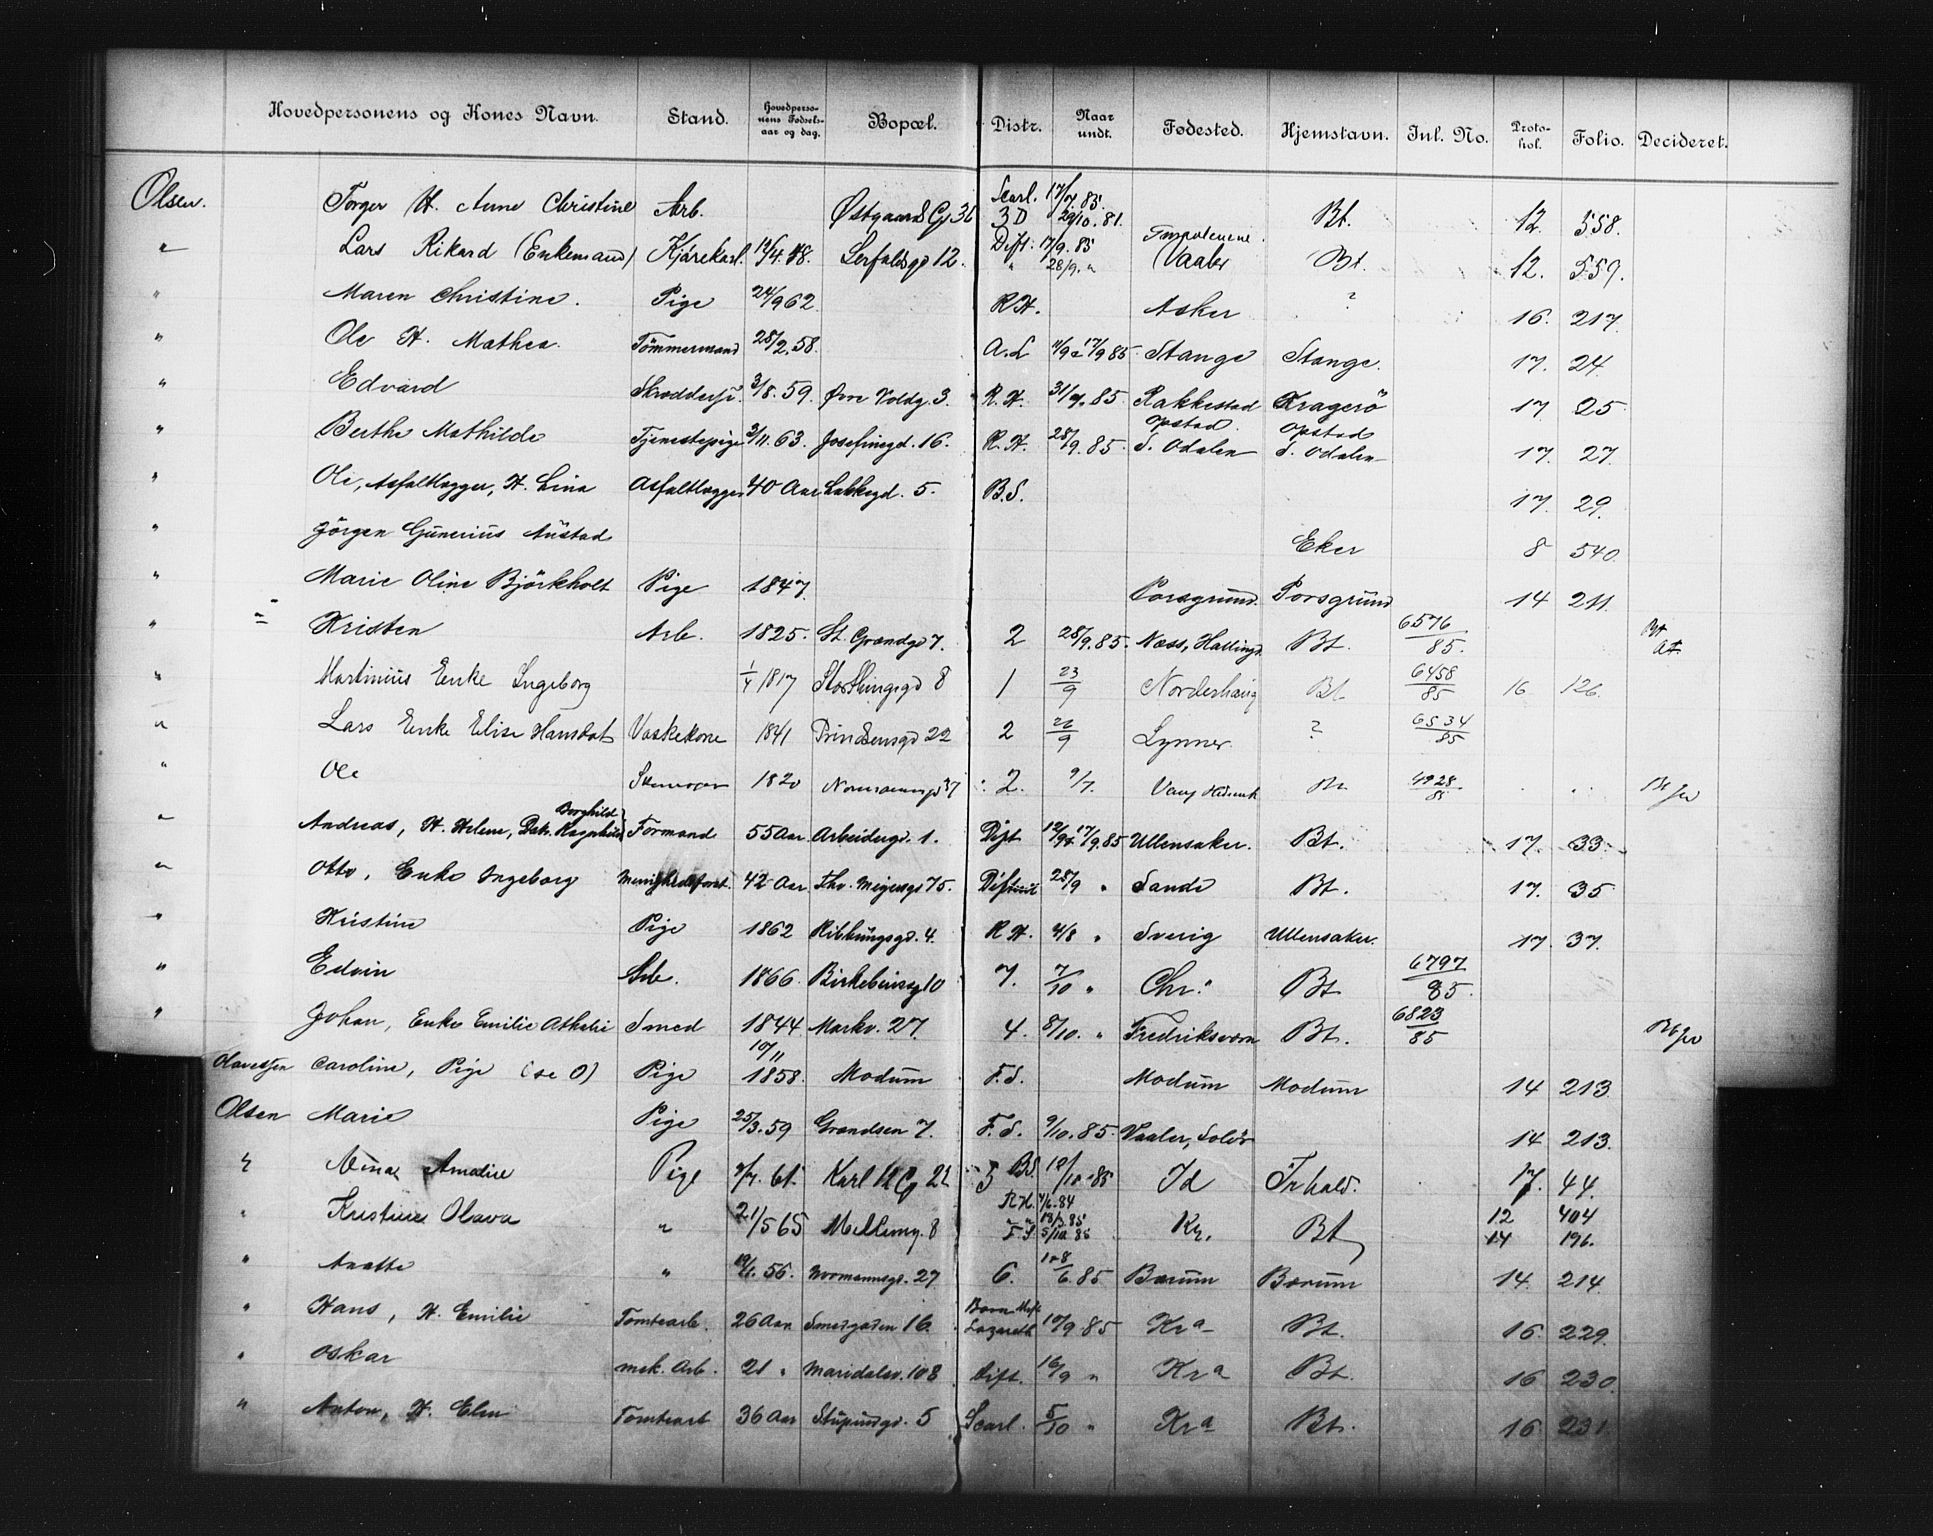 Hovedpersonens og Kones Navn. Stand. Hovedpersonens Fødselsaar og dag. Bopæl. Distr. Naar undt. Fødested. Hjemstavn. Inl. No. Protokol. Folio. Decideret.
Olsen. Torger H. Anne Christine Arb. Østgaards G. Scarl. 17/9 85. 3 D 29/10. 81. Bt. 12. 558.
" Lars Rikard (Enkemand) Kjørekarl. Serfaldsgd 12. Dift: 17/9. 85 " 28/9. " Vaaler Bt. 12. 559.
" Maren Christine. Pige 24/9 62. R.H. Asker ? 16. 217.
" Ole H. Mathea. Tömmermand 28/2. 58. A.L 17/9 85 Stange Stange. 17. 24.
" Edvard Skreddersv. 3/8. 59. Øvre Voldg. 3. R.H. 85 Rakkestad Kragerö 17 25
" Berthe Mathilde Tjenestepige 3/11. 63. Josefinegd. 16. R.H. 28/9. 85. Opstad S. Odalen Opstad S. Odalen 17. 27.
" Ole, Asfaltlægger, H. Lina Asfaltlægger 40 Aar Lakkegd. 5. B.S. 17. 29.
" Jörgen Gunerius Austad Eker 8 540.
" Marie Oline Björkholt Pige 1847. Porsgrund. Porsgrund 14 211.
" Kristen Arb. 1825. St. Grændgd 7. 2 28/9. 85. Næss, Hallingd. Bt. 6576/85. Bt
" Martinius Enke Ingeborg 1/4 1817 Storthingsgd 8 1 23/9 Norderhaug Bt 6458/85 16 126.
" Lars Enke Elise Hansdat Vaskekone 1841 Prindsensgd 22 2 22/9 Lynner ? 6534/85
" Ole 1820 2. 9/7. Vang Hedemk Bt 4928/85 Bt
" Andreas, H. Helene, Døtr. Borghild Ragnhild Formand 55 Aar Arbeidergd. 1. Dift 17/9 85 Ullensaker. Bt. 17. 33.
" Otto, Enke Ingeborg 42 Aar Thv. Meyersgd 75. 28/9 " Sande Bt. 17. 35.
" Kristine Pige 1862 Ribbungsgd. 4. R.H. 4/8 " Sverig Ullensaker. 17. 37.
" Edvin Arb. 1866. Birkebeinerg 10 7. 7/10 " Chr.a Bt 6797/85.
" Johan, Enke Emilie Athalie Smed 1844 Markv. 27. 4. 8/10. " Fredriksværn Bt. 6823/85 Bt
Olavesen Caroline, Pige (se O) Pige 10/11 1858. Modum F.S. Modum Modum 14 213.
Olsen Marie Pige 25/3. 59 Grændsen 7. F.S. 9/10. 85. Vaaler, Solör 14 213.
" Nina Amalie Pige 61. Karl XII G 22 5 B.S. 12/10 85 Id Frhald. 17. 44.
" Kristine Olava " 21/5 65 Mellemg. 8 R.H. 4/6. 84 " " 13/3. 85 F S 5/10 85 Kr. Bt 12 404 14 196.
" Anette " 56. Normannsgd. 27 6. 6. 85 Bærum Bærum 14. 214.
" Hans, H. Emilie Tomtearb. 26 Aar Smedgaden 16. Lazareth 10/9 85 Kra Bt. 16. 229.
" Oskar mek. Arb. 21 " Maridalsv. 108 Dift. 16/9 " Kra Bt. 16 230.
" Anton, H. Elen Tomtearb 36 Aar Stupinsgd. 5 Scarl. 5/10 " Kra Bt. 16 231.